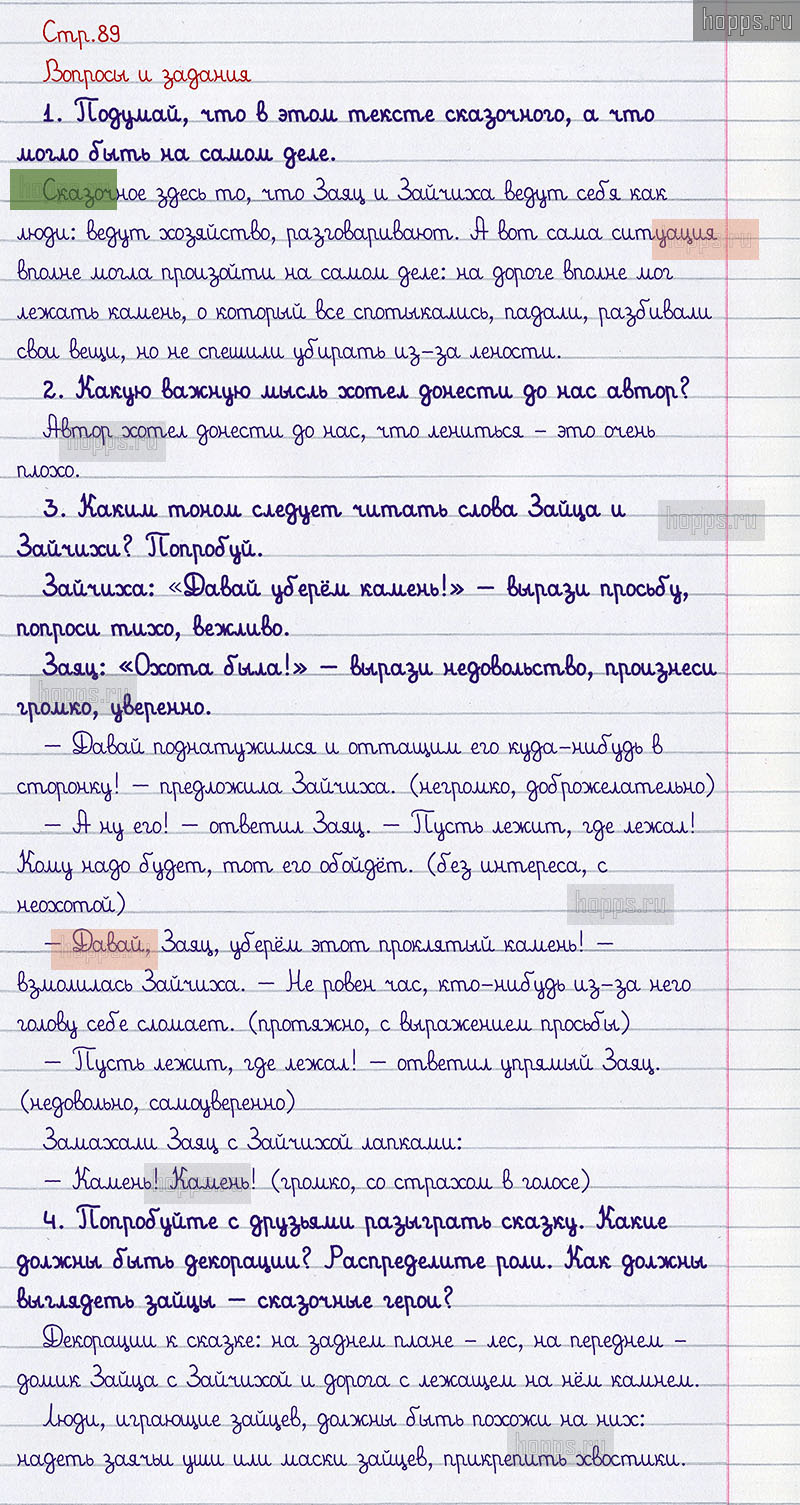 hopps.ru
Стр.89
Вопросы и задания
1. Подумай, что в этом тексте сказочного, а что
могло быть на самом деле.
Сказочное здесь то, что Заяц и Зайчиха ведут себя как
люди: ведут хозяйство, разговаривают. А вот сама ситуация
вполне могла произойти на самом деле: на дороге вполне мог
лежать камень, о который все спотыкались, падали, разбивали
свои вещи, но не спешили убирать из-за лености.
2. Какую важную мысль хотел донести до нас автор?
Автор хотел донести до нас, что лениться – это очень
плохо.
3. Каким тоном следует читать слова Зайца и
Зайчихи? Попробуй.
Зайчиха: «Давай уберём камень!» – вырази просьбу,
попроси тихо, вежливо.
Заяц: «Охота была!» – вырази недовольство, произнеси
громко, уверенно.
– Давай поднатужимся и оттащим его куда-нибудь в
сторонку! – предложила Зайчиха. (негромко, доброжелательно)
– А ну его! – ответил Заяц. – Пусть лежит, где лежал!
Кому надо будет, тот его обойдёт. (без интереса, с
неохотой)
– Давай, Заяц, уберём этот проклятый камень! –
взмолилась Зайчиха. – Не ровен час, кто-нибудь из-за него
голову себе сломает. (протяжно, с выражением просьбы)
– Пусть лежит, где лежал! – ответил упрямый Заяц.
(недовольно, самоуверенно)
Замахали Заяц с Зайчихой лапками:
– Камень! Камень! (громко, со страхом в голосе)
4. Попробуйте с друзьями разыграть сказку. Какие
должны быть декорации? Распределите роли. Как должны
выглядеть зайцы – сказочные герои?
Декорации к сказке: на заднем плане – лес, на переднем –
домик Зайца с Зайчихой и дорога с лежащем на нём камнем.
Люди, играющие зайцев, должны быть похожи на них:
надеть заячьи уши или маски зайцев, прикрепить хвостики.